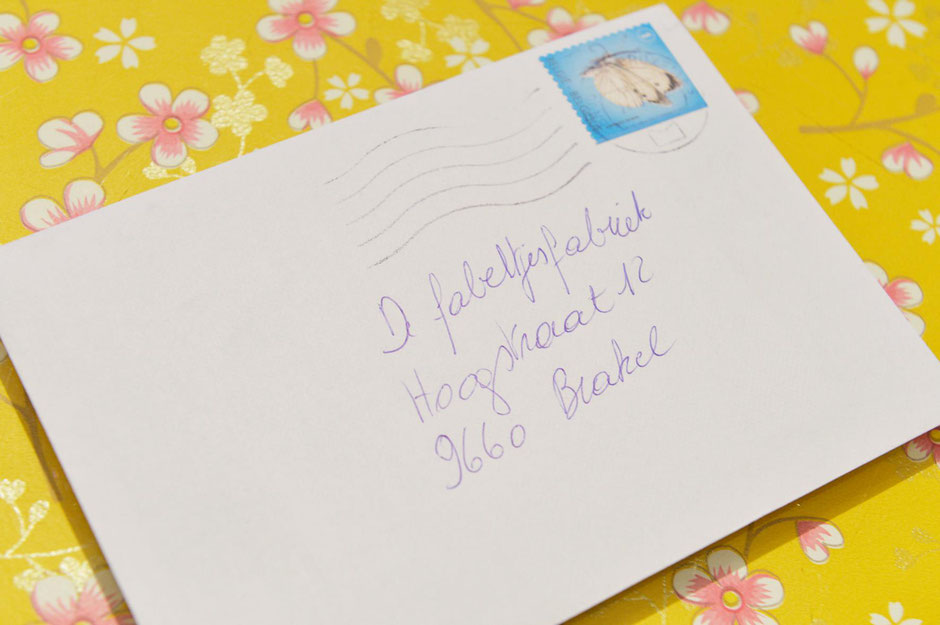 De fabeltjesfabriek
Hoogstraat 12
9660 Brakel